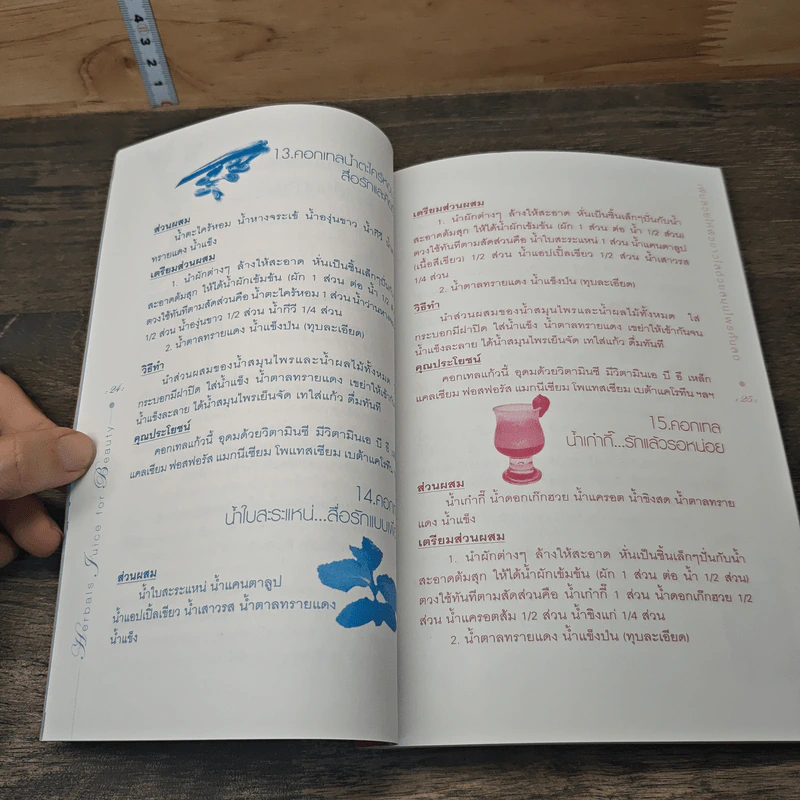 4 3 2 1
13.คอกเทลน้ำตะไคร้หอม
สื่อรักและ
ส่วนผสม
น้ำตะไคร้หอม น้ำหางจระเข้ น้ำองุ่นขาว น้ำกีวี
ทรายแดง น้ำแข็ง
เตรียมส่วนผสม
1. นำผักต่างๆ ล้างให้สะอาด หั่นเป็นชิ้นเล็กๆปั่นกับ
สะอาดต้มสุก ให้ได้น้ำผักเข้มข้น (ผัก 1 ส่วน ต่อ น้ำ 1/2
ตวงใช้ทันทีตามสัดส่วนคือ น้ำตะไคร้หอม 1 ส่วน น้ำว่านหาง
1/2 ส่วน น้ำองุ่นขาว 1/2 ส่วน น้ำกีวี 1/4 ส่วน
2. น้ำตาลทรายแดง น้ำแข็งป่น (ทุบละเอียด)
วิธีทำ
นำส่วนผสมของน้ำสมุนไพรและน้ำผลไม้ทั้งหมด
กระบอกมีฝาปิด ใส่น้ำแข็ง น้ำตาลทรายแดง เขย่าให้เข้า
น้ำแข็งละลาย ได้น้ำสมุนไพรเย็นจัด เทใส่แก้ว ดื่มทันที
คุณประโยชน์
คอกเทลแก้วนี้ อุดมด้วยวิตามินซี มีวิตามินเอ บี อี เหล็ก
แคลเซียม ฟอสฟอรัส แมกนีเซียม โพแทสเซียม เบต้าแคโรทีน
14.คอก
น้ำใบสะระแหน่...สื่อรักแบบ
ส่วนผสม
น้ำใบสะระแหน่ น้ำแคนตาลูป
น้ำแอปเปิ้ลเขียว น้ำเสาวรส น้ำตาลทรายแดง
น้ำแข็ง
Herbals Juice for Beauty
24
เตรียมส่วนผสม
1. นำผักต่างๆ ล้างให้สะอาด หั่นเป็นชิ้นเล็กๆปั่นกับน้ำ
สะอาดต้มสุก ให้ได้น้ำผักเข้มข้น (ผัก 1 ส่วน ต่อ น้ำ 1/2 ส่วน)
ตวงใช้ทันทีตามสัดส่วนคือ น้ำใบสะระแหน่ 1 ส่วน น้ำแคนตาลูป
(เนื้อสีเขียว) 1/2 ส่วน น้ำแอปเปิ้ลเขียว 1/2 ส่วน น้ำเสาวรส
1/4 ส่วน
2. น้ำตาลทรายแดง น้ำแข็งป่น (ทุบละเอียด)
วิธีทำ
นำส่วนผสมของน้ำสมุนไพรและน้ำผลไม้ทั้งหมด ใส่
กระบอกมีฝาปิด ใส่น้ำแข็ง น้ำตาลทรายแดง เขย่าให้เข้ากันจน
น้ำแข็งละลาย ได้น้ำสมุนไพรเย็นจัด เทใส่แก้ว ดื่มทันที
คุณประโยชน์
คอกเทลแก้วนี้ อุดมด้วยวิตามินซี มีวิตามินเอ บี อี เหล็ก
แคลเซียม ฟอสฟอรัส แมกนีเซียม โพแทสเซียม เบต้าแคโรทีน ฯลฯ
15.คอกเทล
น้ำเก๋ากี๊...รักแล้วรอหน่อย
ส่วนผสม
น้ำเก๋ากี๊ น้ำดอกเก๊กฮวย น้ำแครอต น้ำขิงสด น้ำตาลทราย
แดง น้ำแข็ง
เตรียมส่วนผสม
1. นำผักต่างๆ ล้างให้สะอาด หั่นเป็นชิ้นเล็กๆปั่นกับน้ำ
สะอาดต้มสุก ให้ได้น้ำผักเข้มข้น (ผัก 1 ส่วน ต่อ น้ำ 1/2 ส่วน)
ตวงใช้ทันทีตามสัดส่วนคือ น้ำเก๋ากี๊ 1 ส่วน น้ำดอกเก๊กฮวย 1/2
ส่วน น้ำแครอตส้ม 1/2 ส่วน น้ำขิงแก่ 1/4 ส่วน
2. น้ำตาลทรายแดง น้ำแข็งป่น (ทุบละเอียด)
25